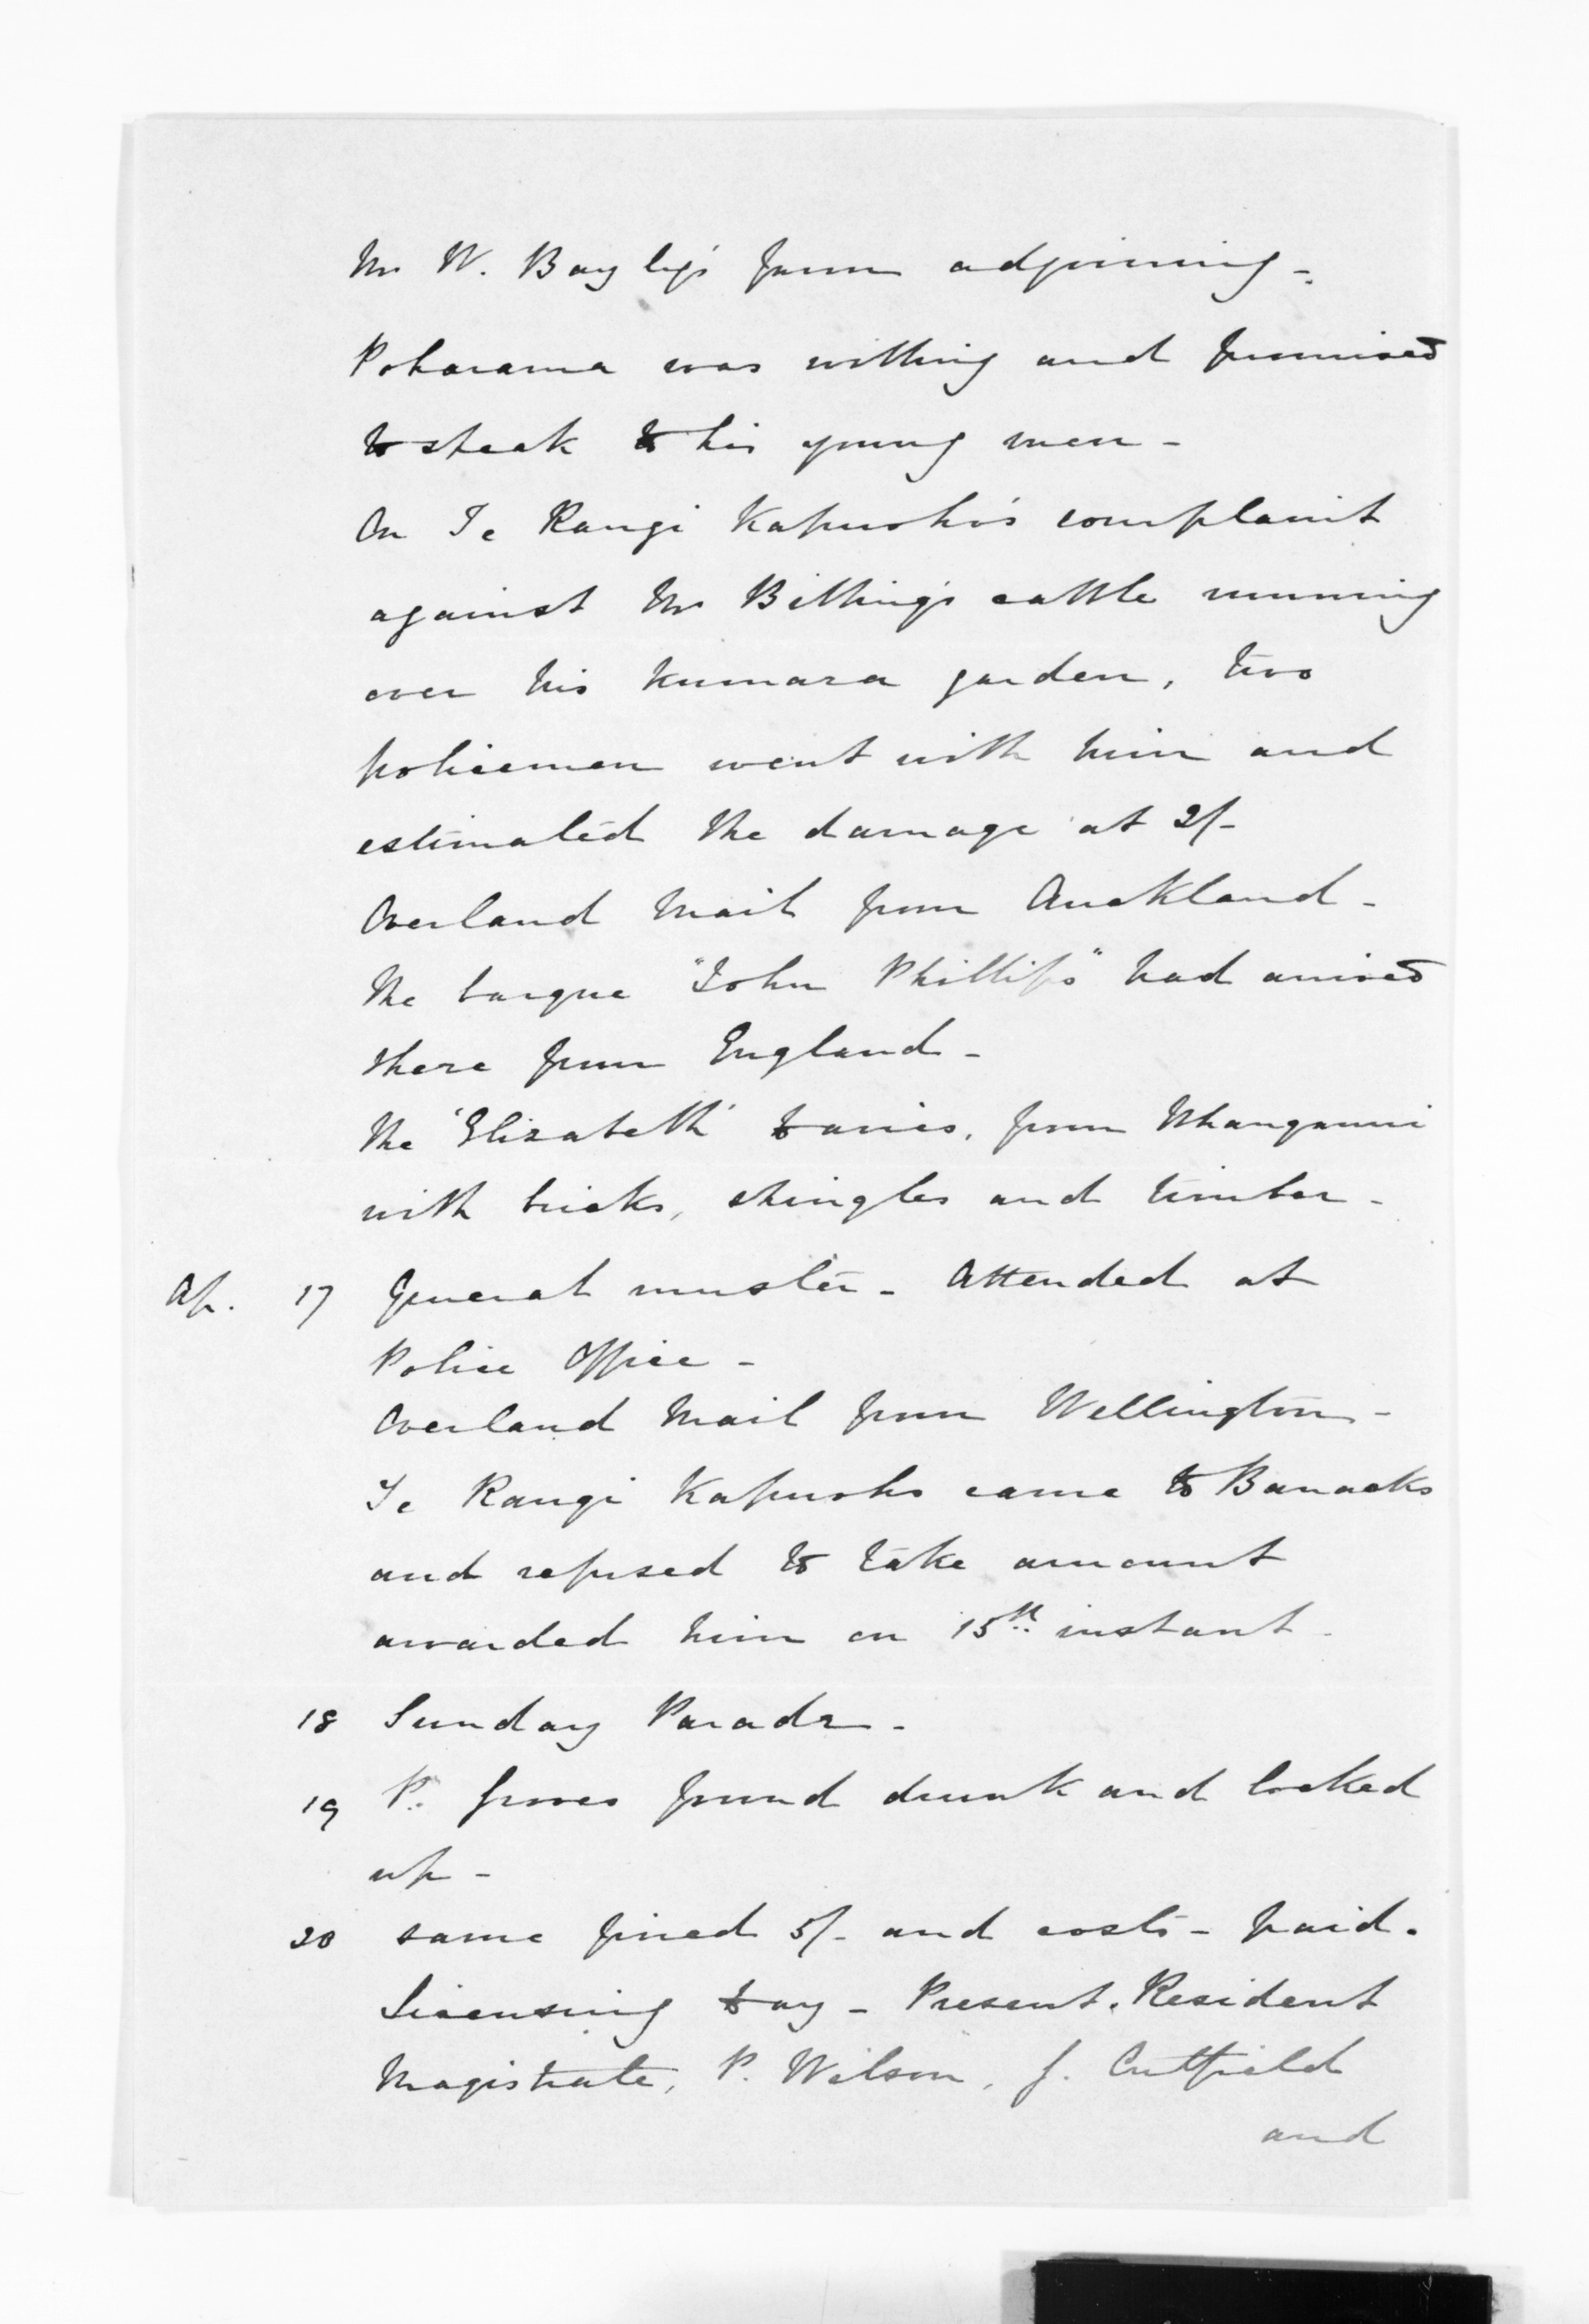 Mr W. Bayly's farm adjoining -
Poharama was willing and promised
to speak to his young men -
On Te Rangi Kapuoho's complaint
against Mr Billing's cattle running
over his kumara garden, two
policemen went with him and
estimated the damage at 2/-
Overland Mail from Auckland -
The barque "John Phillips" had arrived
there from England -
The 'Elizabeth' Davies, from Whanganui
with bricks, shingles and timber -
Ap. 17 General muster - Attended at
Police Office -
Overland Mail from Wellington -
Te Rangi Kapuoho came to Barracks
and refused to take amount
awarded him on 15th instant -
18 Sunday Parade -
19 P. found drunk and locked
up -
20 same fined 5/- and costs - paid.
Licensing Day - Present. Resident
Magistrate, P. Wilson, J. Cutfield
and